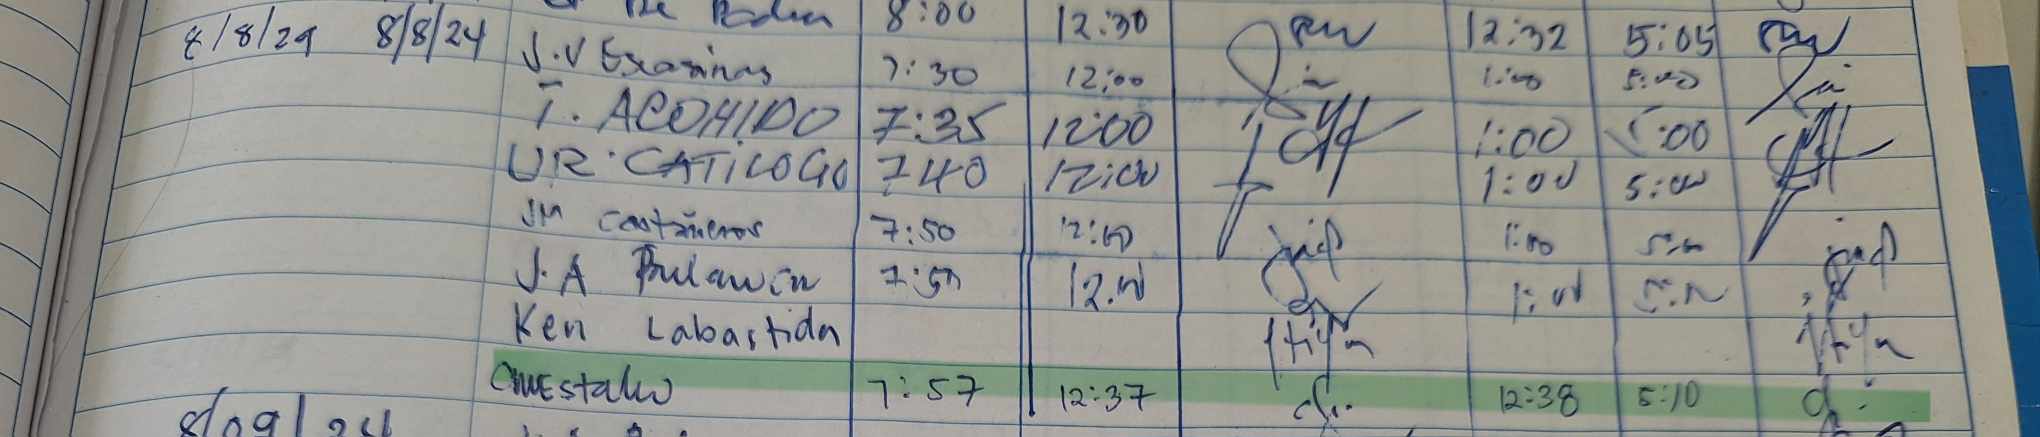 8:00 12:30 12:32 5:05
8/8/24 8/8/24 J.V Escarinas 7:30 12:00 1:00 5:00
T. ACOHIDO 7:35 12:00 1:00 5:00
UR. CATILOGO 7:40 12:00 1:00 5:00
JM Castañeros 7:50 12:00 1:00 5:00
J.A Bulawin 7:50 12:00 1:00 5:00
Ken Labastida
7:57 12:37 12:38 5:10
8/09/24